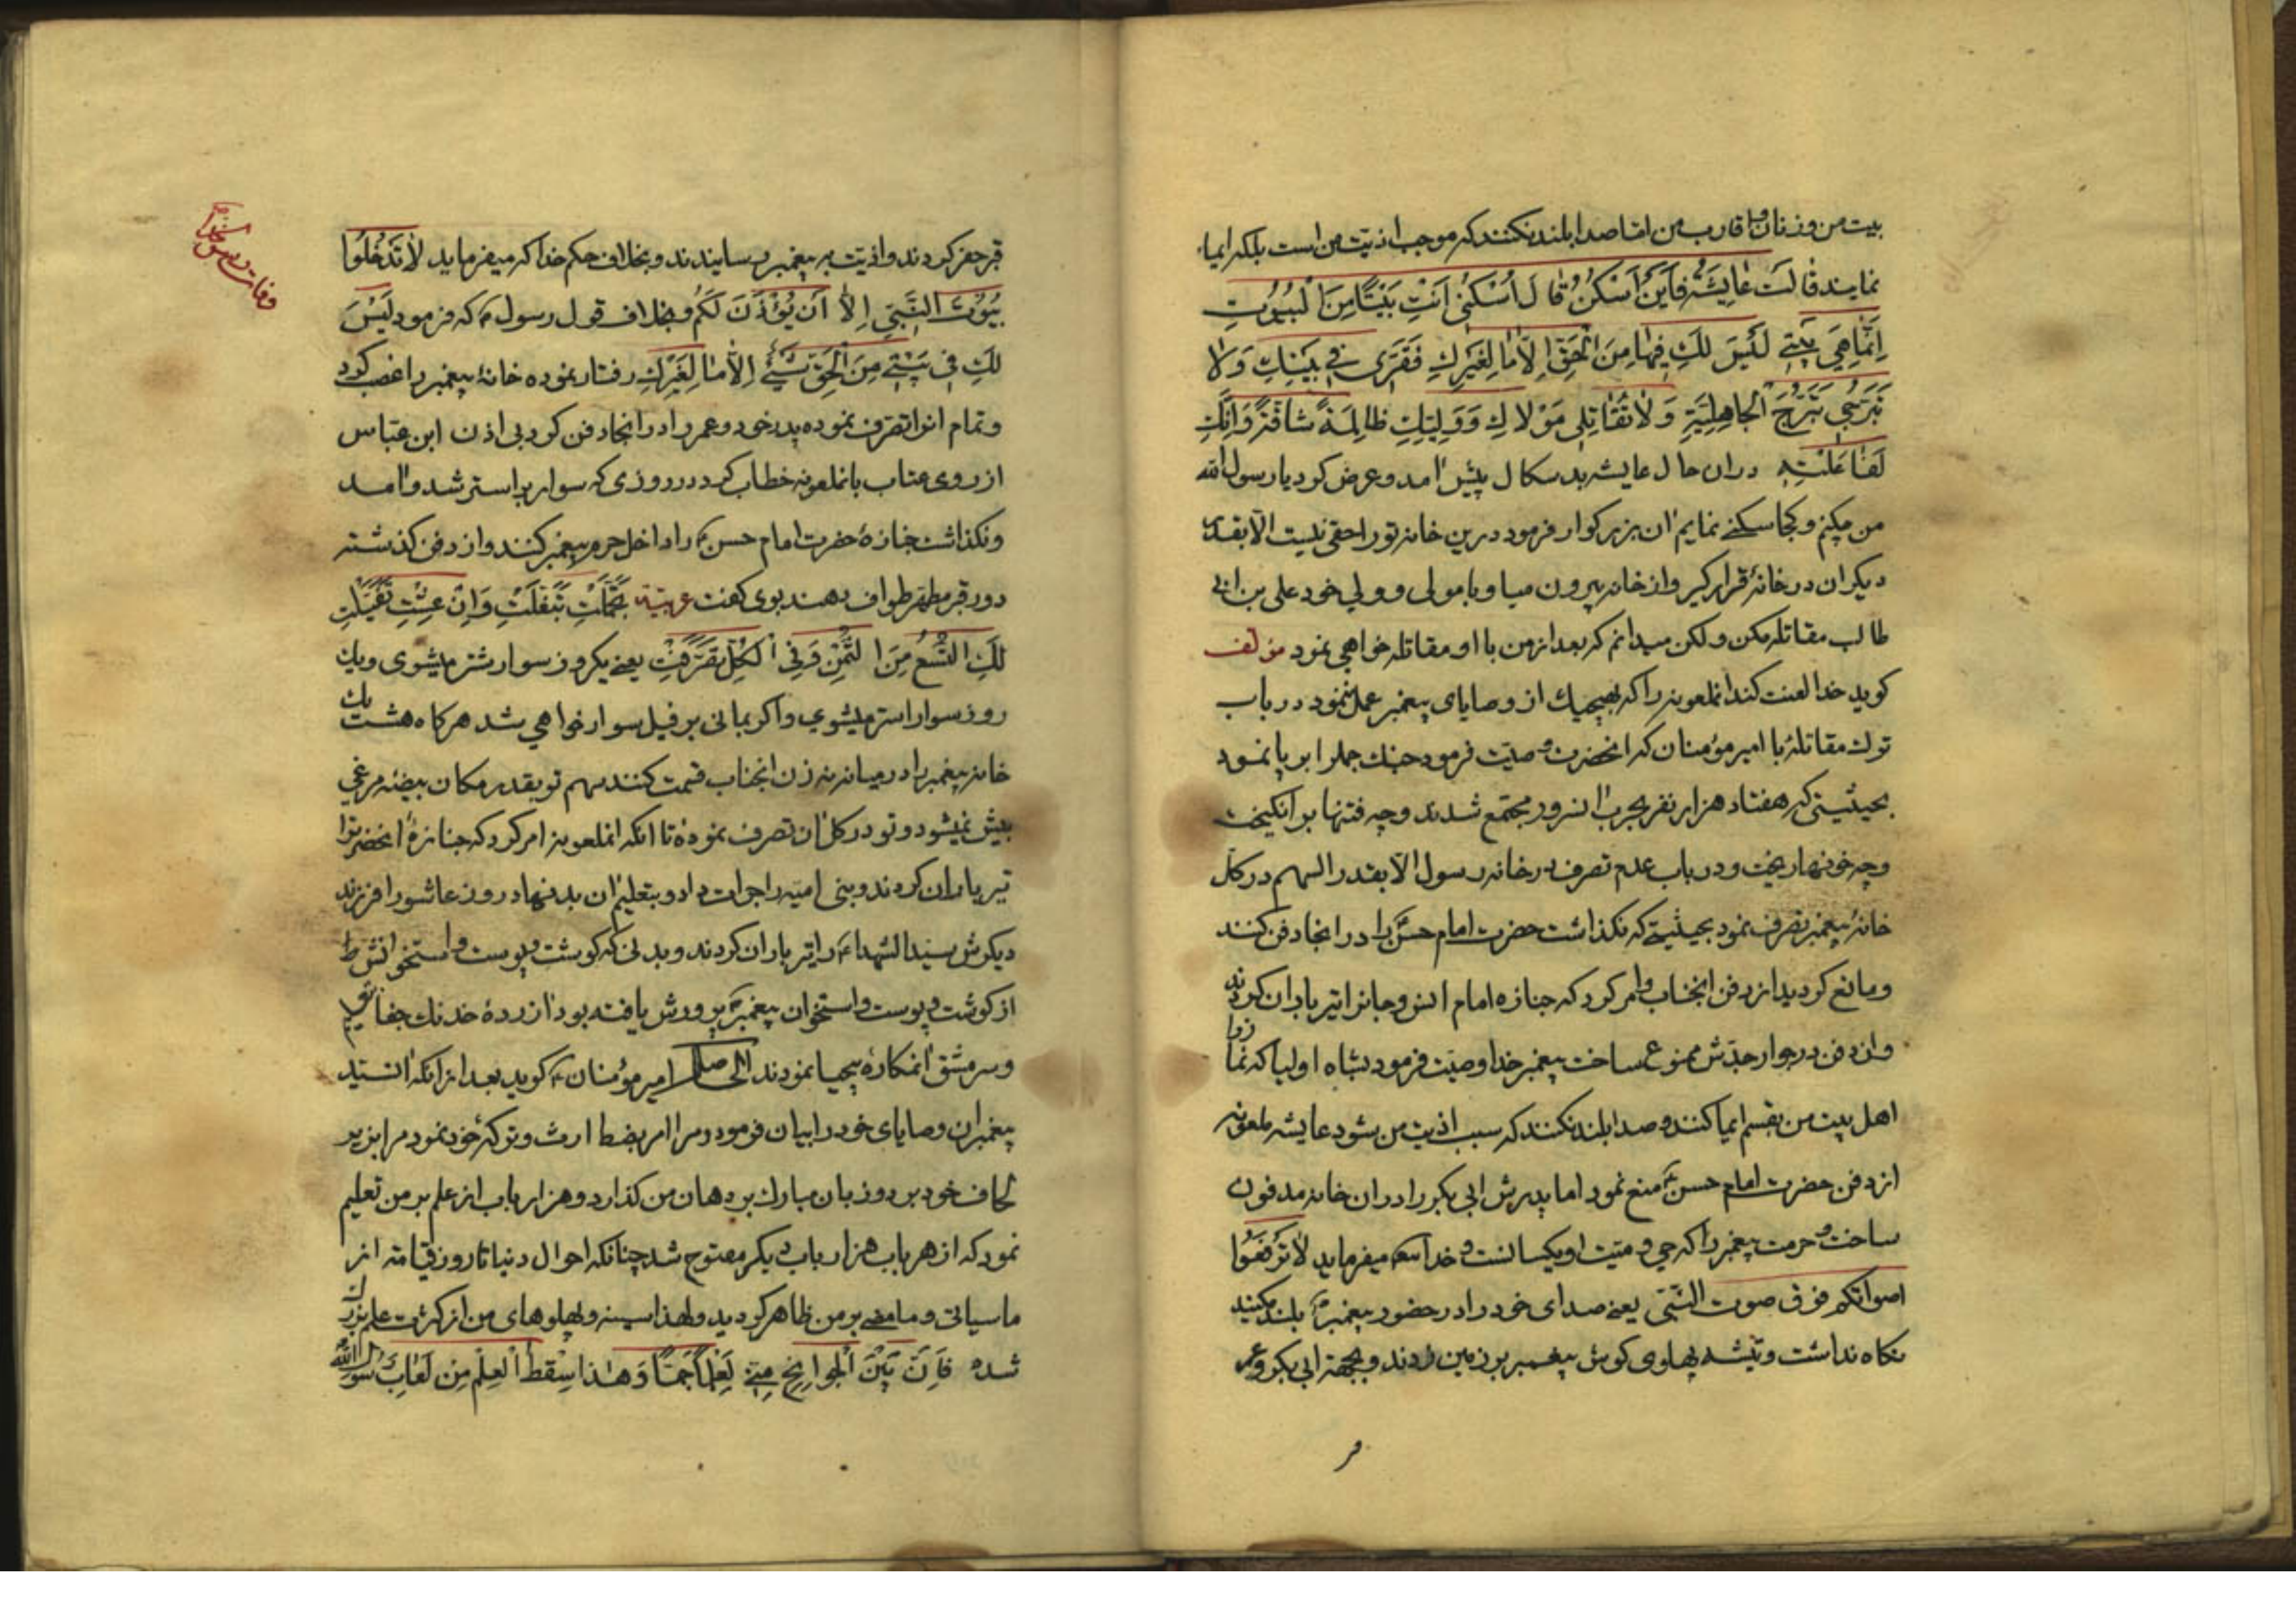 بیت من و زنان و اقارب من اما صدا بلند نکنند که موجب اذیت من است بلکه ایماء
نمایند قالَت عایشَه فَاَینَ اَسکُنُ قالَ اُسکُنی اَنتِ بَیتًا مِنَ البُیُوتِ
اِنَّما هِیَ بَیتی لَیسَ لَكِ فیها مِنَ الحَقِّ اِلّا ما لِغَیرِكِ فَقَرّی فی بَیتِكِ وَلا
تَبَرَّجی تَبَرُّجَ الجاهِلِیَّةِ وَلا تُقاتِلی مَولاكِ وَوَلِیَّكِ ظالِمَةً شاقَّةً وَاِنَّكِ
لَفاعِلَتِه دران حال عایشه بدسکال پیش امد و عرض کرد یا رسول الله
من چکنم و کجا سکنی نمایم ان بزرکوار فرمود درین خانه تو را حقی نیست الا بقدر
دیکران در خانهٔ قرار کیر و از خانه بیرون میا و با مولی و ولی خود علی بن ابی
طالب مقاتله مکن ولکن میدانم که بعد از من با او مقاتله خواهی نمود مؤلف
کوید خدا لعنت کند انملعونه را که بهیچیك از وصایای پیغمبر عمل ننمود در باب
ترك مقاتلهٔ با امیر مؤمنان که انحضرت وصیت فرمود جنك جمل را بر پا نمود
بحیثیتی که هفتاد هزار نفر بحرب ان سرور مجتمع شدند و چه فتنها بر انکیخت
و چه خونها ریخت و در باب عدم تصرف در خانه رسول الا بقدر السهم در کل
خانهٔ پیغمبر تصرف نمود بحیثیتی که نکذاشت حضرت امام حسن را در انجا دفن کنند
و مانع کردید از دفن انجناب و امر کرد که جنازه امام انس و جانرا تیر باران کردند
و از دفن در جوار جدش ممنوع ساخت پیغمبر خدا وصیت فرمود بشاه اولیا که
اهل بیت من بقسم ایما کنند و صدا بلند نکنند که سبب اذیت من بشود عایشه ملعونه
از دفن حضرت امام حسن ع منع نمود اما پدرش ابی بکر را در ان خانه مدفون
ساخت و حرمت پیغمبر را که حی و میت او یکسانست و خدا میفرماید لا تَرفَعُوا
اصواتکم فوق صوت النَّبی یعنی صدای خود را در حضور پیغمبر بلند مکنید
نکاه نداشت و تیشه پهلوی کوش پیغمبر بر زمین زدند و بجهة ابی بکر و عمر
قبر حفر کردند و اذیت به پیغمبر رسانیدند و بخلاف حکم خدا که میفرماید لا تَدخُلُوا
بُیُوتَ النَّبِیِّ اِلّا اَن یُؤذَنَ لَکُم و بخلاف قول رسول که فرمود لَیسَ
لَكِ فی بَیتی مِنَ الحَقِّ شَیءٌ اِلّا ما لِغَیرِكِ رفتار نموده خانهٔ پیغمبر را غصب کرد
و تمام انرا تصرف نموده پدر خود و عمر را در انجا دفن کرد بی اذن ابن عباس
از روی عتاب بانملعونه خطاب کرد در روزی که سوار بر استر شد و امد
و نکذاشت جنازهٔ حضرت امام حسن ع را داخل حرم پیغمبر کنند و از دفن کذشته
دور قبر مطهر طواف دهند بوی کفت عربیّه تَجَمَّلتِ تَبَغَّلتِ وَاِن عِشتِ تَفَیَّلتِ
لَكِ التُّسعُ مِنَ الثُّمنِ وَفی الکُلِّ تَصَرَّفتِ یعنی یکروز سوار شتر میشوی و یك
روز سوار استر میشوی و اکر بمانی بر فیل سوار خواهی شد هرکاه هشت یك
خانه پیغمبر را در میانه نه زن انجناب قسمت کنند سهم تو بقدر مکان بیضه مرغی
بیش نمیشود و تو در کل ان تصرف نمودهٔ تا انکه انملعونه امر کرد که جنازهٔ انحضرترا
تیر باران کردند و بنی امیه را جرات داد و بتعلیم ان بدنهاد روز عاشورا فرزند
دیکرش سیدالشهداء را تیر باران کردند و بدنی که کوشت و پوست و استخوانش
از کوشت و پوست و استخوان پیغمبر پرورش یافته بود ازردهٔ خدنك جفا
و سر مشق انمکارهٔ بیحیا نمودند الحاصل امیر مؤمنان ع کوید بعد از انکه انسید
پیغمبران وصایای خود را بیان فرمود و مرا امر بضبط ارث و ترکهٔ خود نمود مرا بزیر
لحاف خود برد و زبان مبارك بر دهان من کذارد و هزار باب از علم بر من تعلیم
نمود که از هر باب هزار باب دیکر مفتوح شد چنانکه احوال دنیا تا روز قیامة از
ما سیاتی و ما مضی بر من ظاهر کردید ولهذا سینه و پهلوهای من از کثرت علم بزرك
شده فَاِنَّ بَینَ الجَوانِحِ مِنّی لَعِلمًا جَمًّا وَهذا سِقطُ العِلمِ مِن لُعابِ رَسُولِ اللهِ
وفات رسولخدا ص